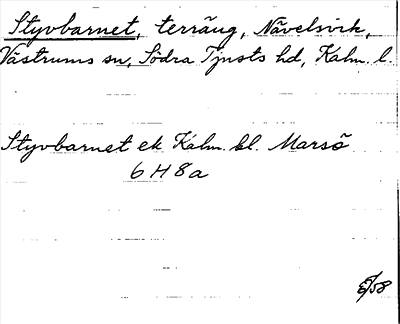 Styvbarnet, terräng, Nävelsvik,
Västrums sn, Södra Tjusts hd, Kalm. l.
Styvbarnet ek Kalm. bl. Marsö
6 H 8a